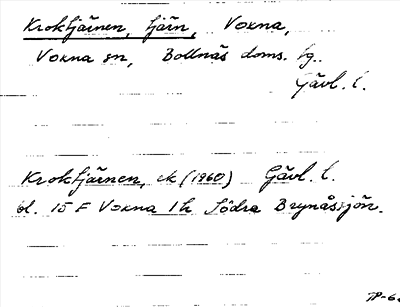 Kroktjärnen, tjärn, Voxna,
Voxna sn, Bollnäs doms. tg.
Gävl. l.
Kroktjärnen, ek (1960) Gävl. l.
bl. 15 F Voxna 1 h Södra Brynåssjön.